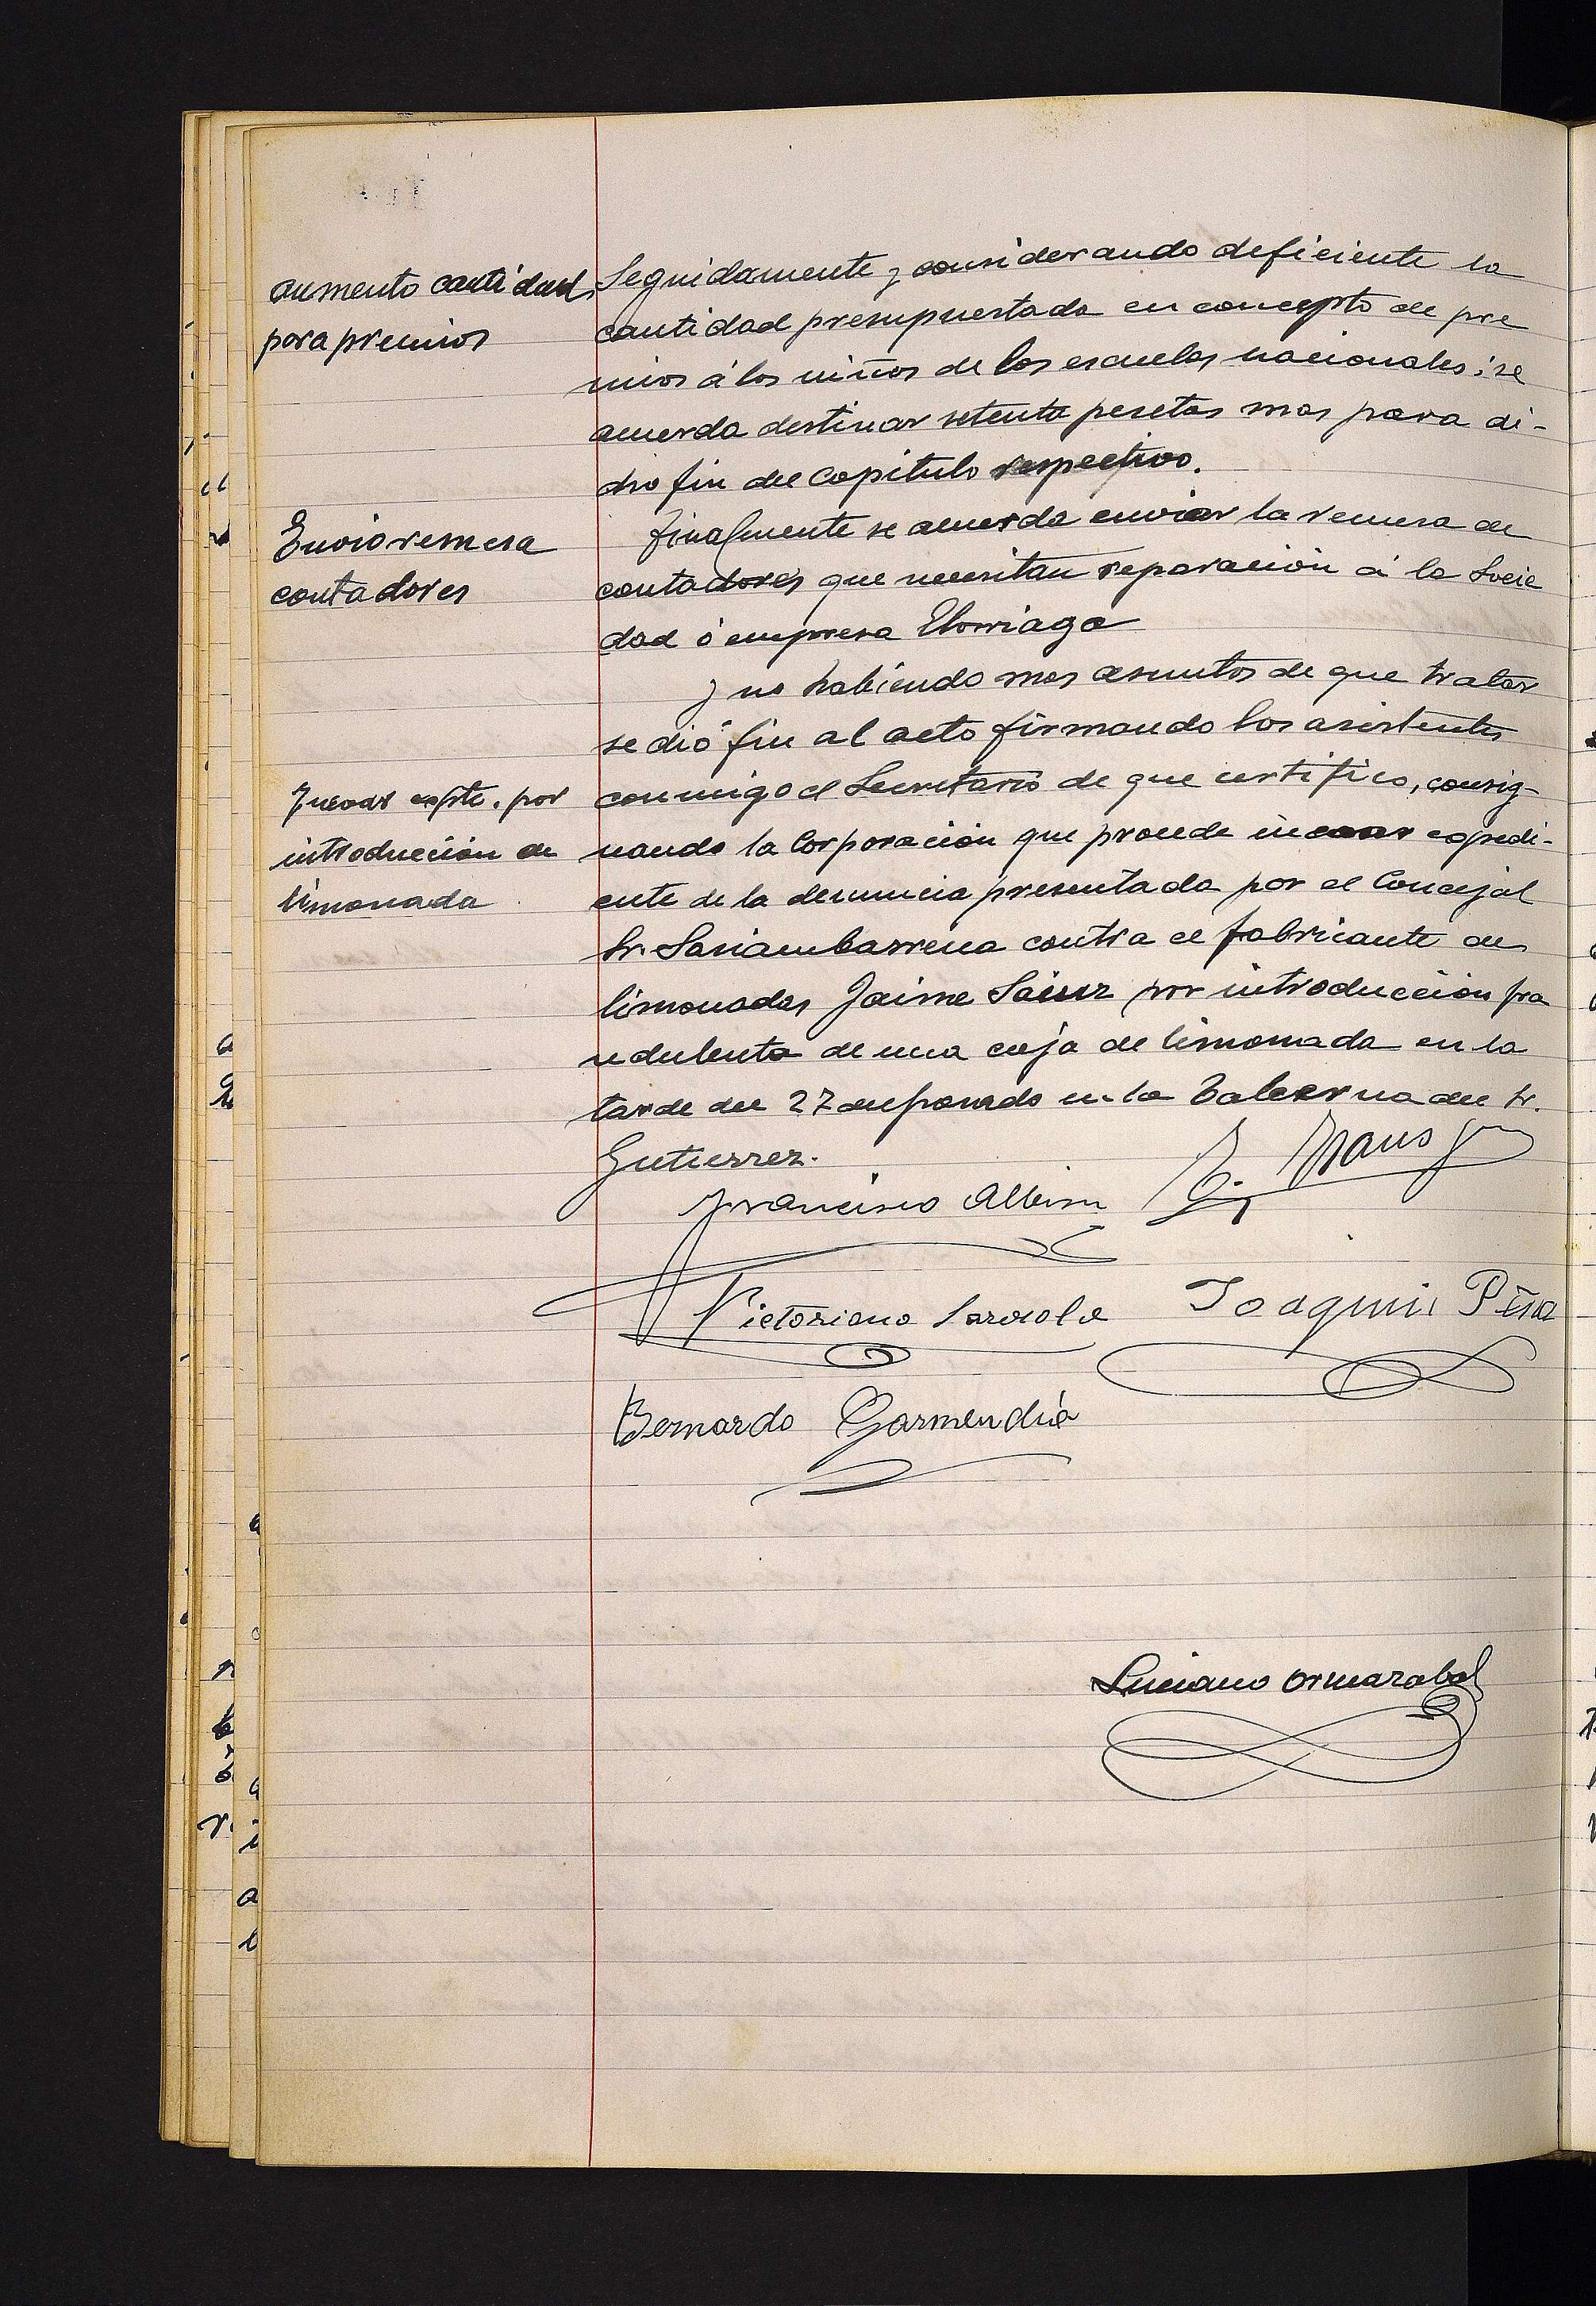 aumento cantidad
para premios
Seguidamente y considerando deficiente la
cantidad presupuestada en concepto de pre
mios á los niños de las escuelas nacionales; se
acuerda destinar setenta pesetas mas para di-
cho fin del Capitulo respectivo.
Envio remesa
contadores
Finalmente se acuerda enviar la remesa de
contadores que necesitan reparación á la Socie
dad ó empresa Elorriaga
y no habiendo mas asuntos de que tratar
se dió fin al acto firmando los asistentes
Incoar expte. por
introducción de
limonada
conmigo el Secretario de que certifico, consig-
nando la Corporación que procede incoar expedi-
ente de la denuncia presentada por el Concejal
Sr. Sasiambarrena contra el fabricante de
limonadas Jaime Sainz por introducción fra
udulenta de una caja de limonada en la
tarde del 27 del pasado en la Taberna del Sr.
Gutierrez.
Francisco Albisu
Victoriano Joaquin Peña
Bernardo Garmendia
Luciano Ormazabal